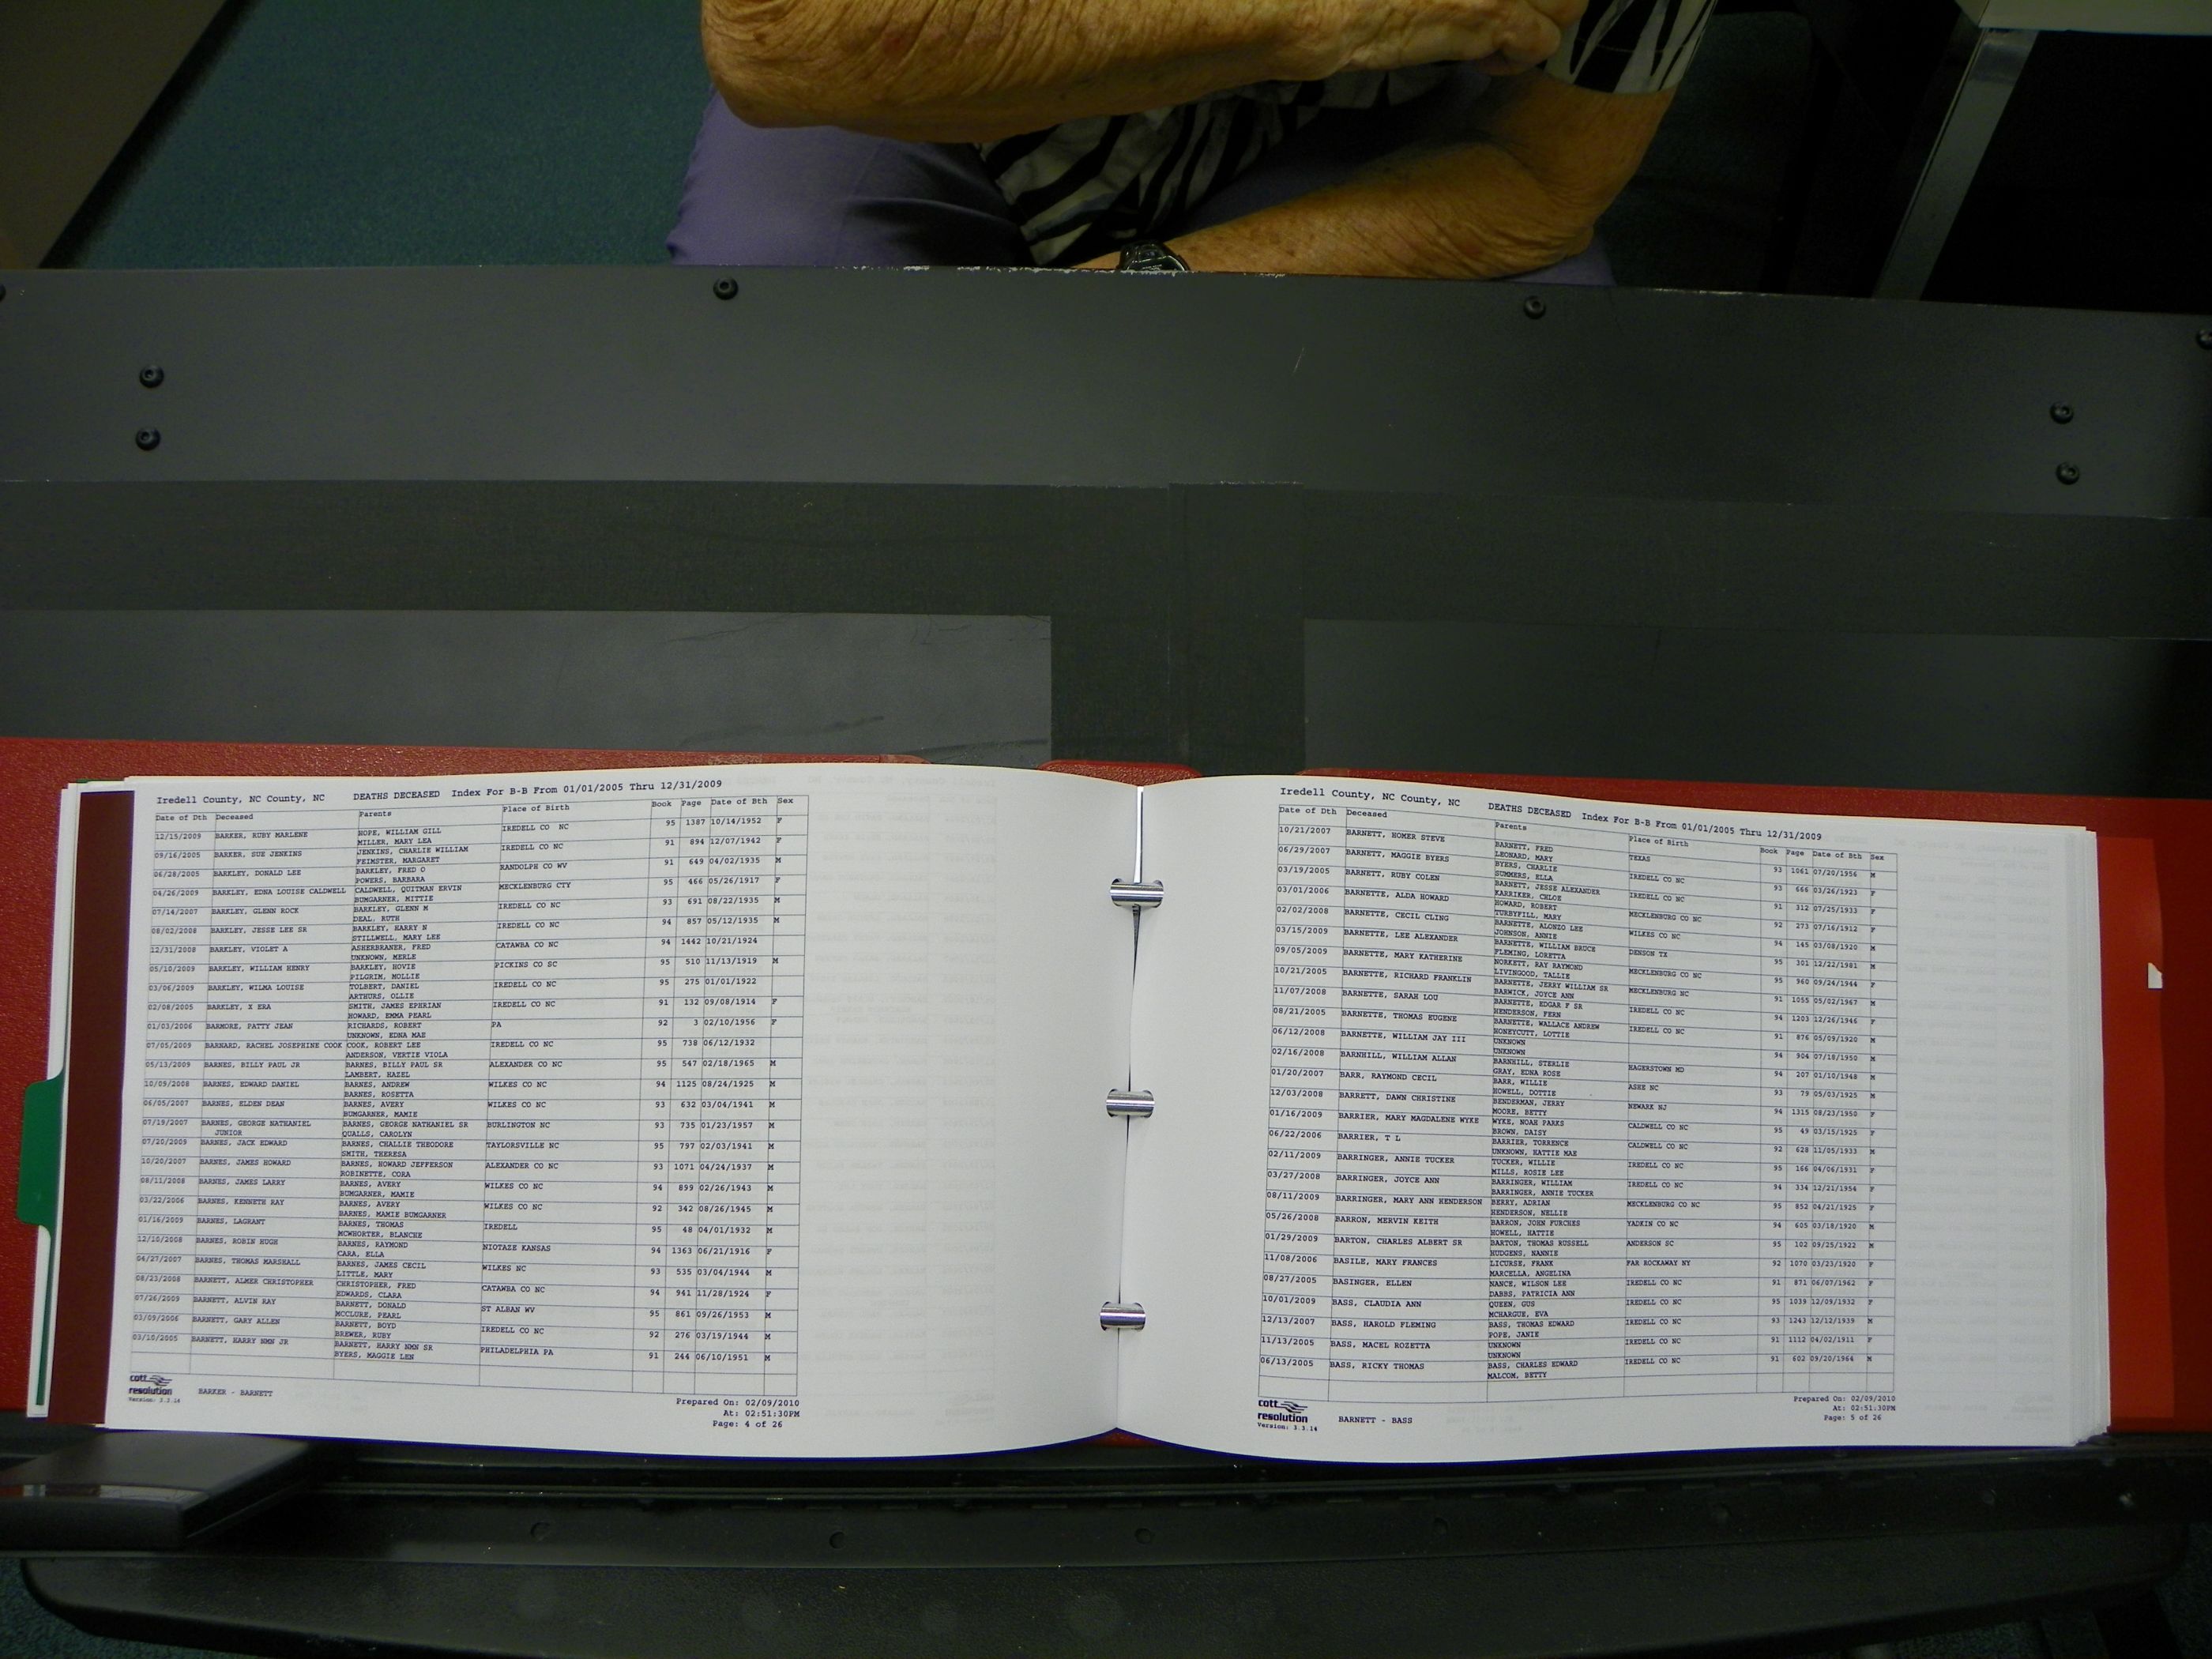 Iredell County, NC County, NC DEATHS DECEASED Index For B-B From 01/01/2005 Thru 12/31/2009
Date of Dth Deceased Parents Place of Birth Book Page Date of Bth Sex
12/15/2009 BARKER, RUBY MARLENE HOPE, WILLIAM GILL IREDELL CO NC 95 1387 10/14/1952 F
MILLER, MARY LEA
09/16/2005 BARKER, SUE JENKINS JENKINS, CHARLIE WILLIAM IREDELL CO NC 91 894 12/07/1942 F
FEIMSTER, MARGARET
06/28/2005 BARKLEY, DONALD LEE BARKLEY, FRED O RANDOLPH CO WV 91 649 04/02/1935 M
POWERS, BARBARA
04/26/2009 BARKLEY, EDNA LOUISE CALDWELL CALDWELL, QUITMAN ERVIN MECKLENBURG CTY 95 466 05/26/1917 F
BUMGARNER, MITTIE
07/14/2007 BARKLEY, GLENN ROCK BARKLEY, GLENN M IREDELL CO NC 93 691 08/22/1935 M
DEAL, RUTH
08/02/2008 BARKLEY, JESSE LEE SR BARKLEY, HARRY N IREDELL CO NC 94 857 05/12/1935 M
STILLWELL, MARY LEE
12/31/2008 BARKLEY, VIOLET A ASHERBRANER, FRED CATAWBA CO NC 94 1442 10/21/1924
UNKNOWN, MERLE
05/10/2009 BARKLEY, WILLIAM HENRY BARKLEY, HOVIE PICKINS CO SC 95 510 11/13/1919 M
PILGRIM, MOLLIE
03/06/2009 BARKLEY, WILMA LOUISE TOLBERT, DANIEL IREDELL CO NC 95 275 01/01/1922
ARTHURS, OLLIE
02/08/2005 BARKLEY, X ERA SMITH, JAMES EPHRIAN IREDELL CO NC 91 132 09/08/1914 F
HOWARD, EMMA PEARL
01/03/2006 BARMORE, PATTY JEAN RICHARDS, ROBERT PA 92 3 02/10/1956 F
UNKNOWN, EDNA MAE
07/05/2009 BARNARD, RACHEL JOSEPHINE COOK COOK, ROBERT LEE IREDELL CO NC 95 738 06/12/1932
ANDERSON, VERTIE VIOLA
05/13/2009 BARNES, BILLY PAUL JR BARNES, BILLY PAUL SR ALEXANDER CO NC 95 547 02/18/1965 M
LAMBERT, HAZEL
10/09/2008 BARNES, EDWARD DANIEL BARNES, ANDREW WILKES CO NC 94 1125 08/24/1925 M
BARNES, ROSETTA
06/05/2007 BARNES, ELDEN DEAN BARNES, AVERY WILKES CO NC 93 632 03/04/1941 M
BUMGARNER, MAMIE
07/19/2007 BARNES, GEORGE NATHANIEL BARNES, GEORGE NATHANIEL SR BURLINGTON NC 93 735 01/23/1957 M
JUNIOR QUALLS, CAROLYN
07/20/2009 BARNES, JACK EDWARD BARNES, CHALLIE THEODORE TAYLORSVILLE NC 95 797 02/03/1941 M
SMITH, THERESA
10/20/2007 BARNES, JAMES HOWARD BARNES, HOWARD JEFFERSON ALEXANDER CO NC 93 1071 04/24/1937 M
ROBINETTE, CORA
08/11/2008 BARNES, JAMES LARRY BARNES, AVERY WILKES CO NC 94 899 02/26/1943 M
BUMGARNER, MAMIE
03/22/2006 BARNES, KENNETH RAY BARNES, AVERY WILKES CO NC 92 342 08/26/1945 M
BARNES, MAMIE BUMGARNER
01/16/2009 BARNES, LAGRANT BARNES, THOMAS IREDELL 95 48 04/01/1932 M
MCWHORTER, BLANCHE
12/10/2008 BARNES, ROBIN HUGH BARNES, RAYMOND NIOTAZE KANSAS 94 1363 06/21/1916 F
CARA, ELLA
04/27/2007 BARNES, THOMAS MARSHALL BARNES, JAMES CECIL WILKES NC 93 535 03/04/1944 M
LITTLE, MARY
08/23/2008 BARNETT, ALMER CHRISTOPHER CHRISTOPHER, FRED CATAWBA CO NC 94 941 11/28/1924 F
EDWARDS, CLARA
07/26/2009 BARNETT, ALVIN RAY BARNETT, DONALD ST ALBAN WV 95 861 09/26/1953 M
MCCLURE, PEARL
03/09/2006 BARNETT, GARY ALLEN BARNETT, BOYD IREDELL CO NC 92 276 03/19/1944 M
BREWER, RUBY
03/10/2005 BARNETT, HARRY NMN JR BARNETT, HARRY NMN SR PHILADELPHIA PA 91 244 06/10/1951 M
BYERS, MAGGIE LEN
cott
resolution BARKER - BARNETT
Version: 3.3.14
Prepared On: 02/09/2010
At: 02:51:30PM
Page: 4 of 26
Iredell County, NC County, NC DEATHS DECEASED Index For B-B From 01/01/2005 Thru 12/31/2009
Date of Dth Deceased Parents Place of Birth Book Page Date of Bth Sex
10/21/2007 BARNETT, HOMER STEVE BARNETT, FRED TEXAS 93 1061 07/20/1956 M
LEONARD, MARY
06/29/2007 BARNETT, MAGGIE BYERS BYERS, CHARLIE IREDELL CO NC 93 666 03/26/1923 F
SUMMERS, ELLA
03/19/2005 BARNETT, RUBY COLEN BARNETT, JESSE ALEXANDER IREDELL CO NC 91 312 07/25/1933 F
KARRIKER, CHLOE
03/01/2006 BARNETTE, ALDA HOWARD HOWARD, ROBERT MECKLENBURG CO NC 92 273 07/16/1912 F
TURBYFILL, MARY
02/02/2008 BARNETTE, CECIL CLING BARNETTE, ALONZO LEE WILKES CO NC 94 145 03/08/1920 M
JOHNSON, ANNIE
03/15/2009 BARNETTE, LEE ALEXANDER BARNETTE, WILLIAM BRUCE DENSON TX 95 301 12/22/1981 M
FLEMING, LORETTA
09/05/2009 BARNETTE, MARY KATHERINE NORKETT, RAY RAYMOND MECKLENBURG CO NC 95 960 09/24/1944 F
LIVINGOOD, TALLIE
10/21/2005 BARNETTE, RICHARD FRANKLIN BARNETTE, JERRY WILLIAM SR MECKLENBURG NC 91 1055 05/02/1967 M
BARWICK, JOYCE ANN
11/07/2008 BARNETTE, SARAH LOU BARNETTE, EDGAR F SR IREDELL CO NC 94 1203 12/26/1946 F
HENDERSON, FERN
08/21/2005 BARNETTE, THOMAS EUGENE BARNETTE, WALLACE ANDREW IREDELL CO NC 91 876 05/09/1920 M
HONEYCUTT, LOTTIE
06/12/2008 BARNETTE, WILLIAM JAY III UNKNOWN 94 904 07/18/1950 M
UNKNOWN
02/16/2008 BARNHILL, WILLIAM ALLAN BARNHILL, STERLIE HAGERSTOWN MD 94 207 01/10/1948 M
GRAY, EDNA ROSE
01/20/2007 BARR, RAYMOND CECIL BARR, WILLIE ASHE NC 93 79 05/03/1925 M
HOWELL, DOTTIE
12/03/2008 BARRETT, DAWN CHRISTINE BENDERMAN, JERRY NEWARK NJ 94 1315 08/23/1950 F
MOORE, BETTY
01/16/2009 BARRIER, MARY MAGDALENE WYKE WYKE, NOAH PARKS CALDWELL CO NC 95 49 03/15/1925 F
BROWN, DAISY
06/22/2006 BARRIER, T L BARRIER, TORRENCE CALDWELL CO NC 92 628 11/05/1933 M
UNKNOWN, HATTIE MAE
02/11/2009 BARRINGER, ANNIE TUCKER TUCKER, WILLIE IREDELL CO NC 95 166 04/06/1931 F
MILLS, ROSIE LEE
03/27/2008 BARRINGER, JOYCE ANN BARRINGER, WILLIAM IREDELL CO NC 94 334 12/21/1954 F
BARRINGER, ANNIE TUCKER
08/11/2009 BARRINGER, MARY ANN HENDERSON BERRY, ADRIAN MECKLENBURG CO NC 95 852 04/21/1925 F
HENDERSON, NELLIE
05/26/2008 BARRON, MERVIN KEITH BARRON, JOHN FURCHES YADKIN CO NC 94 605 03/18/1920 M
HOWELL, HATTIE
01/29/2009 BARTON, CHARLES ALBERT SR BARTON, THOMAS RUSSELL ANDERSON SC 95 102 09/25/1922 M
HUDGENS, NANNIE
11/08/2006 BASILE, MARY FRANCES LICURSE, FRANK FAR ROCKAWAY NY 92 1070 03/23/1920 F
MARCELLA, ANGELINA
08/27/2005 BASINGER, ELLEN NANCE, WILSON LEE IREDELL CO NC 91 871 06/07/1962 F
DABBS, PATRICIA ANN
10/01/2009 BASS, CLAUDIA ANN QUEEN, GUS IREDELL CO NC 95 1039 12/09/1932 F
MCHARGUE, EVA
12/13/2007 BASS, HAROLD FLEMING BASS, THOMAS EDWARD IREDELL CO NC 93 1243 12/12/1939 M
POPE, JANIE
11/13/2005 BASS, MACEL ROZETTA UNKNOWN IREDELL CO NC 91 1112 04/02/1911 F
UNKNOWN
06/13/2005 BASS, RICKY THOMAS BASS, CHARLES EDWARD IREDELL CO NC 91 602 09/20/1964 M
MALCOM, BETTY
cott
resolution BARNETT - BASS
Version: 3.3.14
Prepared On: 02/09/2010
At: 02:51:30PM
Page: 5 of 26